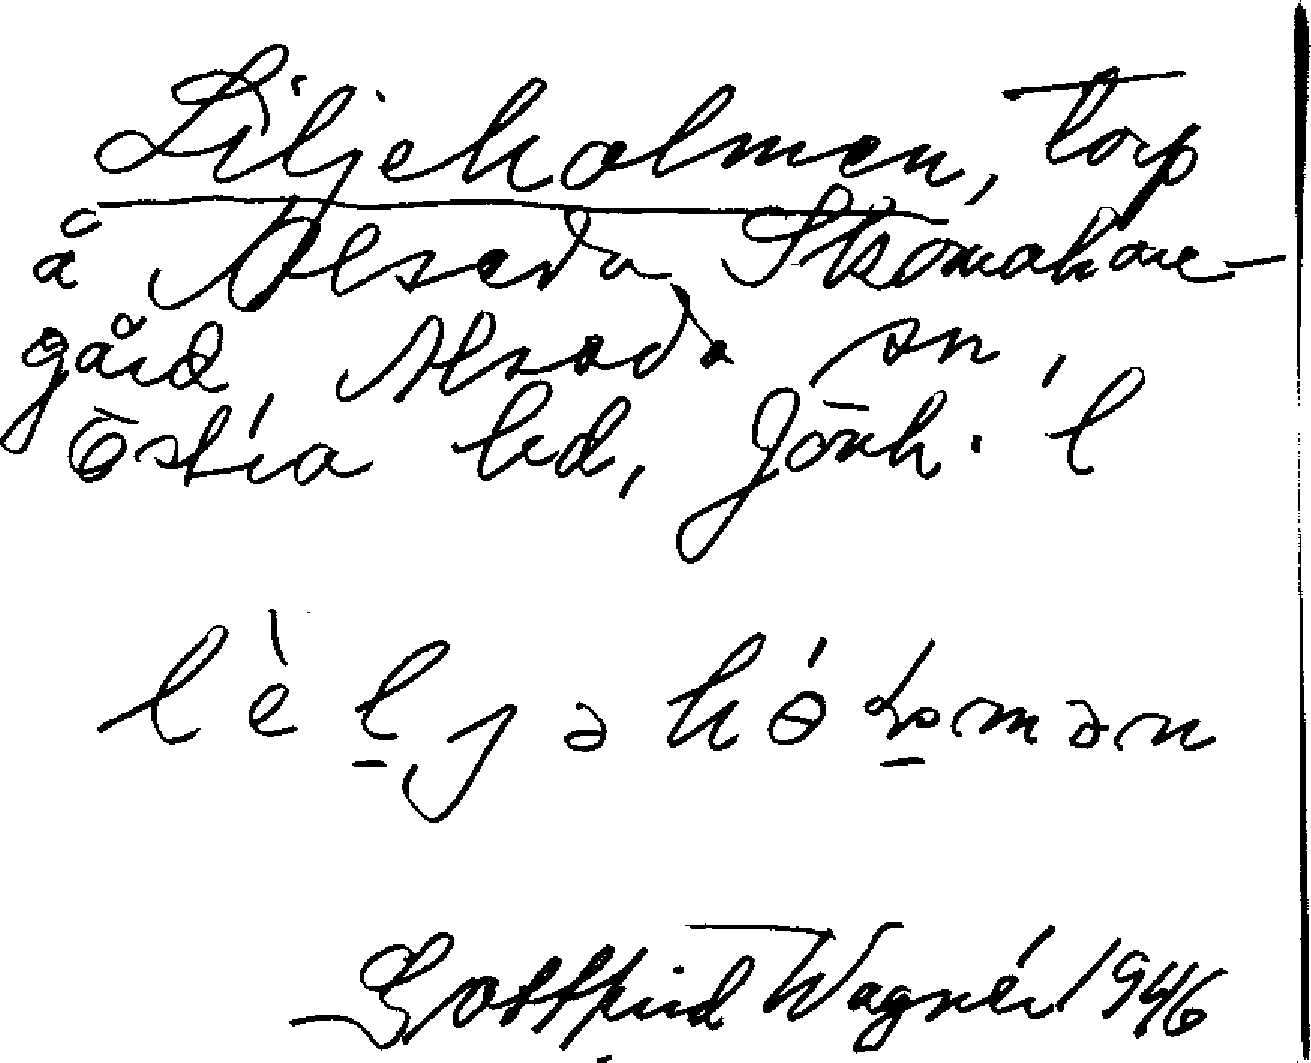 Liljeholmen, torp
å Alseda Skomakare-
gård, Alseda sn,
Östra hd, Jönk. l
lèl̲jəhól̲mən
Gottfrid Wagnér 1946